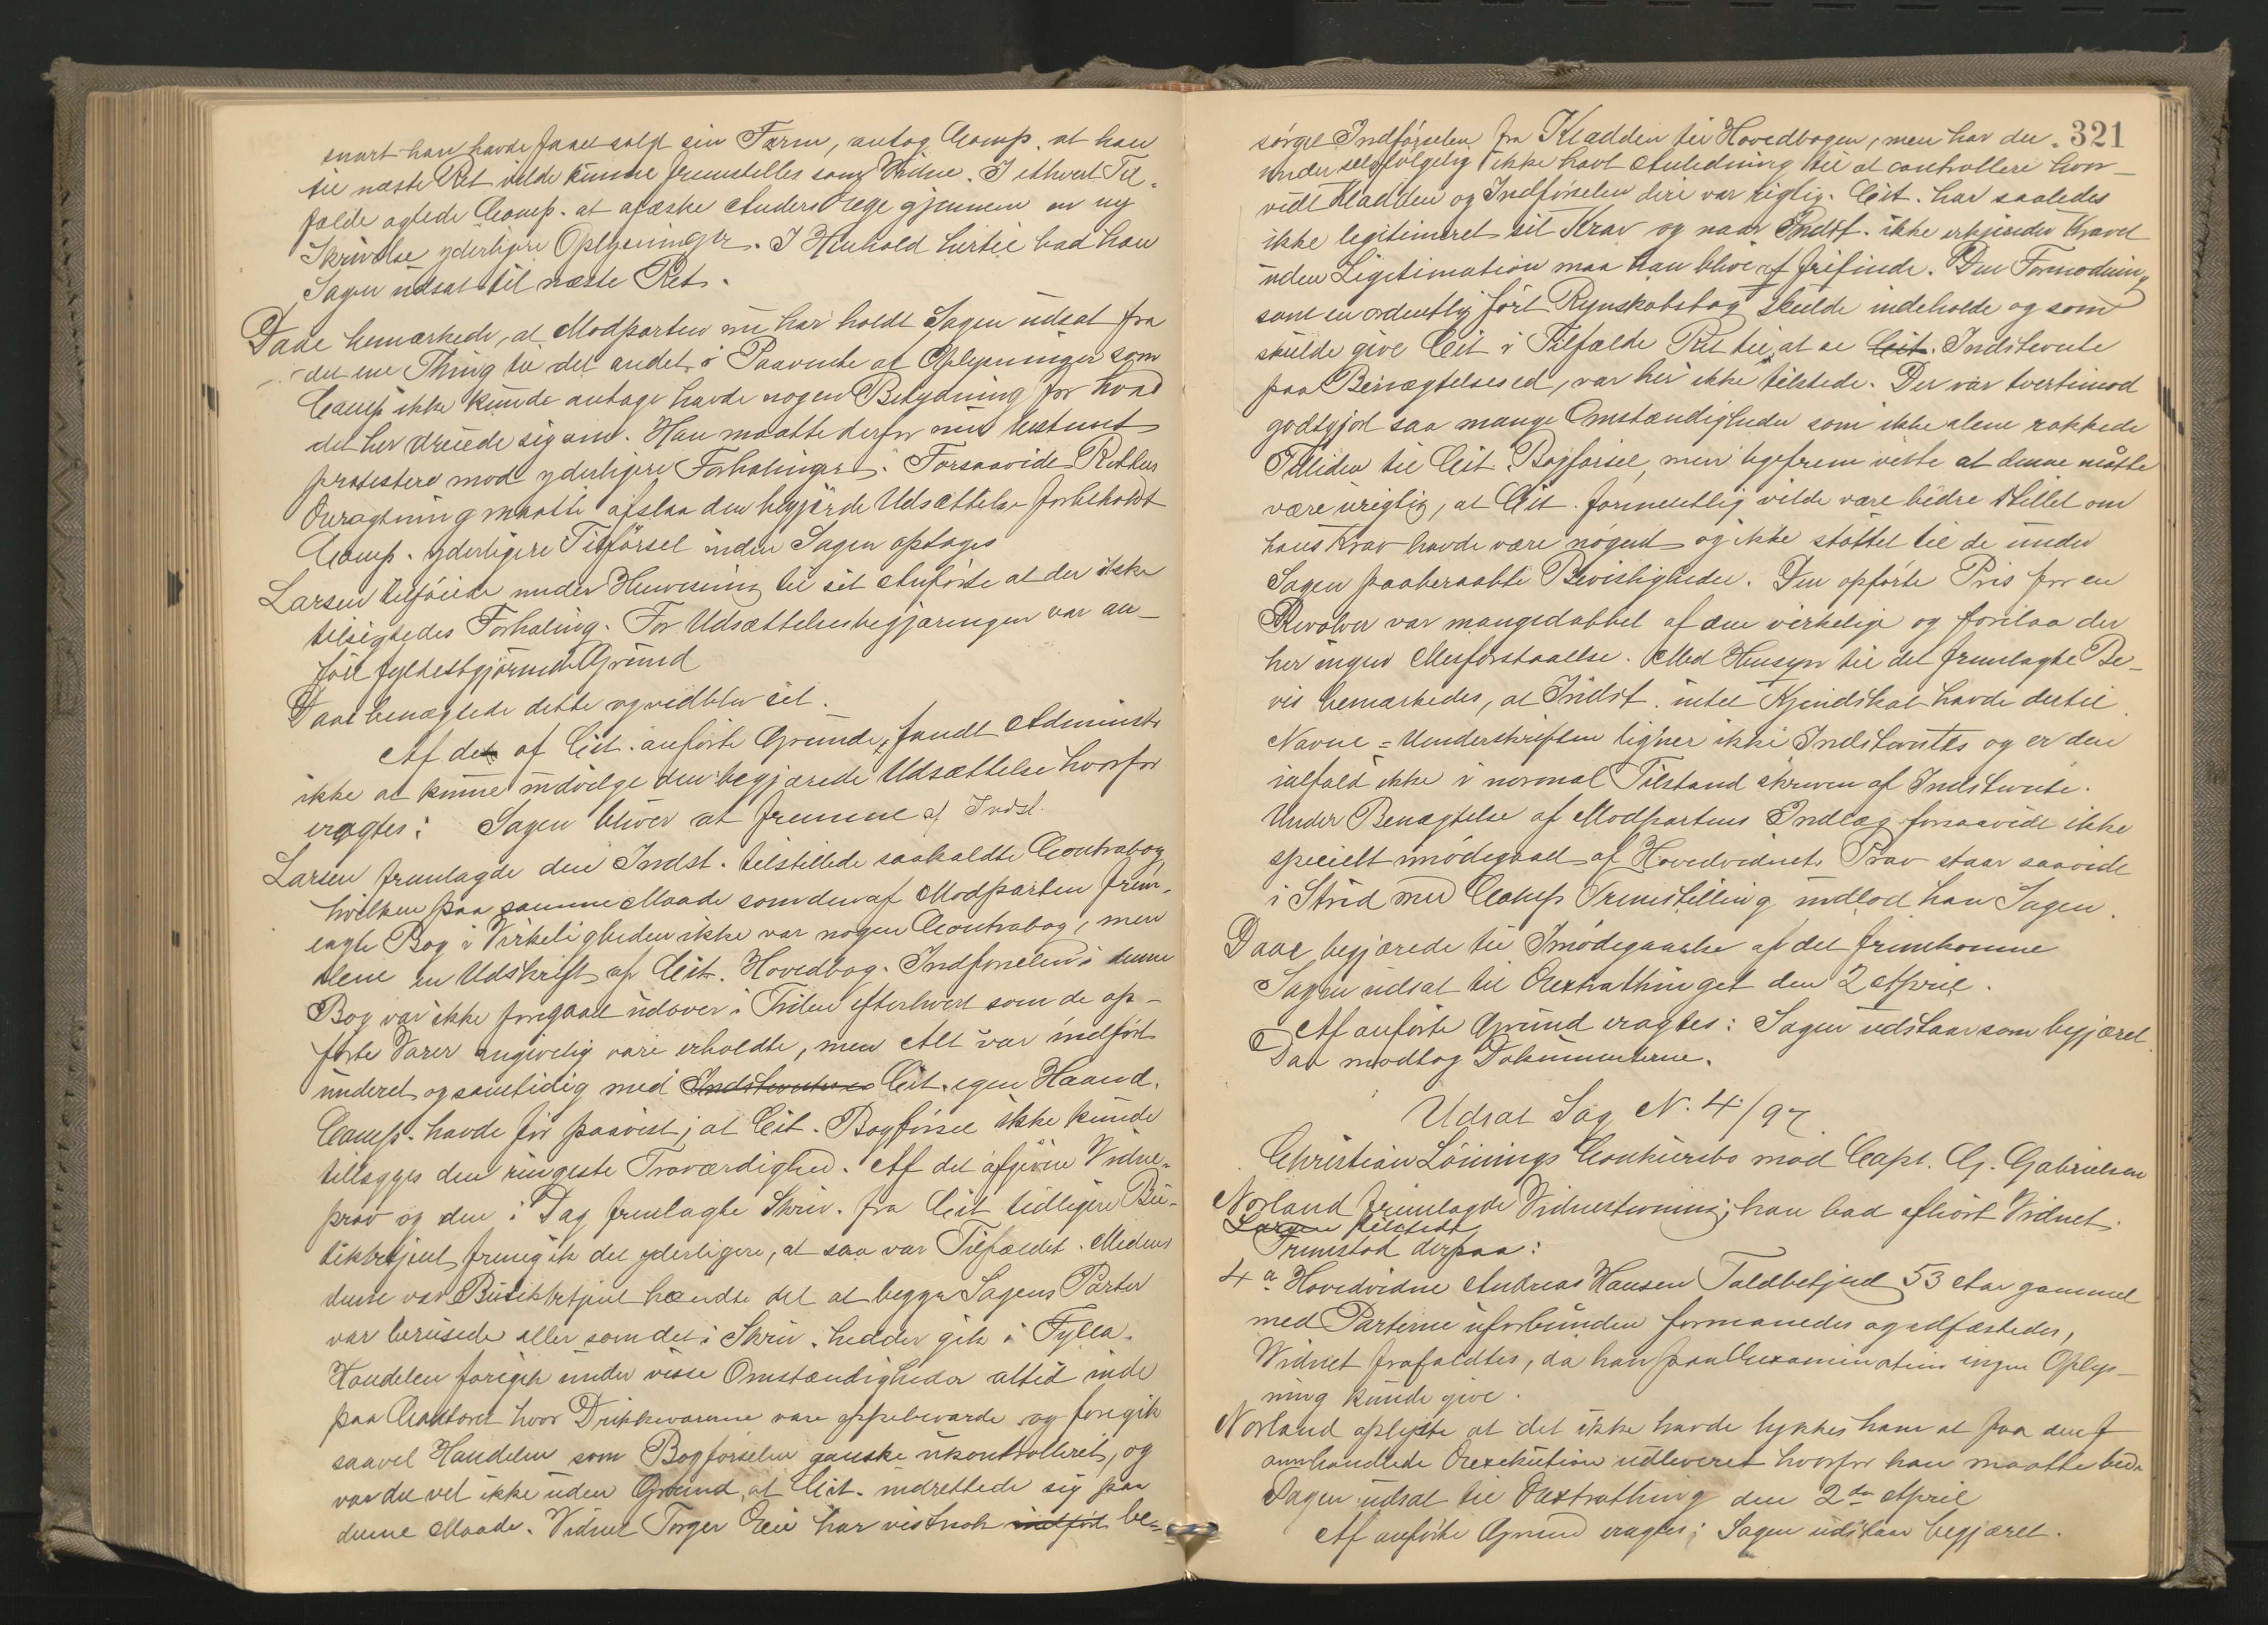 snart han havde faaet solgt sin Farm, antog Comp. at han
til næste Ret vilde kunne fremstilles som Vidne. I ethvert Til-
fælde agtede Comp. at afæske Anders Oie gjennem en ny
Skrivelse yderligere Oplysninger. I Henhold hertil bad han
Sagen udsat til næste Ret.
Daae bemærkede, at Modparten nu har holdt Sagen udsat fra
det ene Thing til det andet i Paavente af Oplysninger som
Comp. ikke kunde antage havde nogen Betydning for hvad
det her dreiede sig om. Han maatte derfor nu bestemt
protestere mod yderligere Forhalinger. Forsaavidt Retten
Overagtning maatte afslaa den begjærede Udsættelse forbeholdt
Comp. yderligere Tilførsel inden Sagen optages
Larsen tilføiede under Henvisning til sit Anførte at der ikke
tilsigtedes Forhaling. For Udsættelsesbegjæringen var an-
ført fyldestgjørende Grund
Daae benægtede dette og vedblev sit.
Af det af Cit. anførte Grunde, fandt Administr
ikke at kunne indvilge den begjærede Udsættelse hvorfor
eragtes: Sagen bliver at fremme af Indst.
Larsen fremlagde den Indst. tilstillede saakaldte Contrabog
hvilken paa samme Maade som den af Modparten frem-
lagte Bog i Virkeligheden ikke var nogen Contrabog, men
alene en Udskrift af Cit. Hovedbog. Indførselen i denne
Bog var ikke foregaaet udover i Tiden efterhvert som de op-
førte Varer angivelig vare erholdte, men Alt var indført
underet og samtidig med Indstevntes Cit. egen Haand.
Comp. havde før paavist, at Cit. Bogførsel ikke kunde
tillægges den ringeste Troværdighed. Af det afgivne Vidne-
prov og den i Dag fremlagte Skriv. fra Cit tidligere Bu-
tikbetjent fremgik det yderligere, at saa var Tilfældet. Medens
denne var Butikbetjent hændte det at begge Sagens Parter
var berusede eller som det i Skriv. hedder gik i Fylla.
Handelen foregik under visse Omstændigheder altid inde
paa Contoret hvor Drikkevarerne vare oppebevarede og foregik
saavel Handelen som Bogførselen ganske ukontrolleret, og
var det vel ikke uden Grund, at Cit. indrettede sig paa
denne Maade. Vidnet Torger Oie har vistnok indført be-
321
sørget Indførselen fra Kladden til Hovedbogen, men har der-
under selvfølgelig ikke havt Anledning til at controllere hvor-
vidt Kladden og Indførselen deri var rigtig. Cit. har saaledes
ikke legitimeret sit Krav og naar Indst. ikke erkjender Kravet
uden Legitimation maa han blive at frifinde. Den Formodning
som en ordentlig ført Regnskabsbog skulde indeholde og som
skulde give Cit i Tilfælde Ret til, at se Cit. Indstevnte
paa Benægtelsesed, var her ikke tilstede. Der var tvertimod
godtgjort saa mange Omstændigheder som ikke alene rokkede
Tilliden til Cit. Bogførsel, men ligefrem viste at denne måtte
være urigtig, at Cit. formentlig vilde være bedre stillet om
hans Krav havde være nøgent og ikke støttet til de under
Sagen paaberaabte Bevisligheder. Den opførte Pris for en
Revolver var mangedobbel af den virkelige og forelaa der
her ingen Misforstaaelse. Med Hensyn til det fremlagte Be-
vis bemærkedes, at Indst. intet Kjendskab havde dertil
Navne-Underskriften ligner ikke Indstevntes og er den
ialfald ikke i normal Tilstand skreven af Indstevnte.
Under Benægtelse af Modpartens Indlæg forsaavidt ikke
specielt imødegaaet af Hovedvidnets Prov staar saavidt
i Strid med Comps Fremstilling indlod han Sagen.
Daae begjærede til Imødegaaelse af det fremkomne
Sagen udsat til Oextrathinget den 2 April.
Af anførte Grund eragtes: Sagen udstaar som begjæret
Daa modtog Dokumenterne.
Udsat Sag N. 4/97
Christian Lönings Conkursbo mod Capt. G. Gabrielsen
Norland fremlagde Vidnestevning; han bad afhørt Vidnet.
Larsen tilstede
Fremstod derpaa:
4a Hovedvidne Andreas Hansen Toldbetjent 53 Aar gammel
med Parterne uforbunden formanedes og edfæstedes,
Vidnet frafaldtes, da han paa Examination ingen Oplys-
ning kunde give.
Norland oplyste at det ikke havde lykkes ham at faa den f
omhandlede Oexekution udleveret hvorfor han maatte bede
Sagen udsat til Oextrathing den 2den April
Af anførte Grund eragtes; Sagen udstaar begjæret.